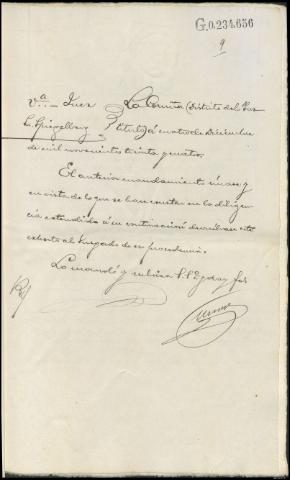 G.0.234.636
9
Va. Juez La Coruña (distrito del Ins-
Sr. Spiegelberg tituto) á cuatro de Diciembre
de mil novecientos treinta y cuatro.
El anterior mandamiento únase y
en vista de lo que se hace constar en la diligen-
cia extendida á su continuación devuélvase este
exhorto al Juzgado de su procedencia.
Lo mandó y rubrica S.S. doy fé